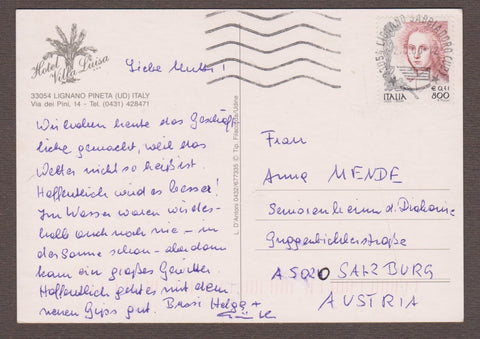 Hotel
Villa Luisa
33054 LIGNANO PINETA (UD) ITALY
Via dei Pini, 14 - Tel. (0431) 428471
Liebe Mutti!
Wir haben heute das Geschäft-
liche gemacht, weil das
Wetter nicht so heiß ist.
Hoffentlich wird es besser!
Im Wasser waren wir des-
halb auch noch nie - in
der Sonne schon - aber dann
kam ein großes Gewitter.
Hoffentlich geht es mit dem
neuen Gyps gut. Bussi Helga +
L. D'Antoni 0432/677355 © Tip.
ITALIA
€ 0,41
800
Frau
Anna MENDE
Seniorenheim d. Diakonie
Guggenbichlerstraße
A 5020 SALZBURG
AUSTRIA